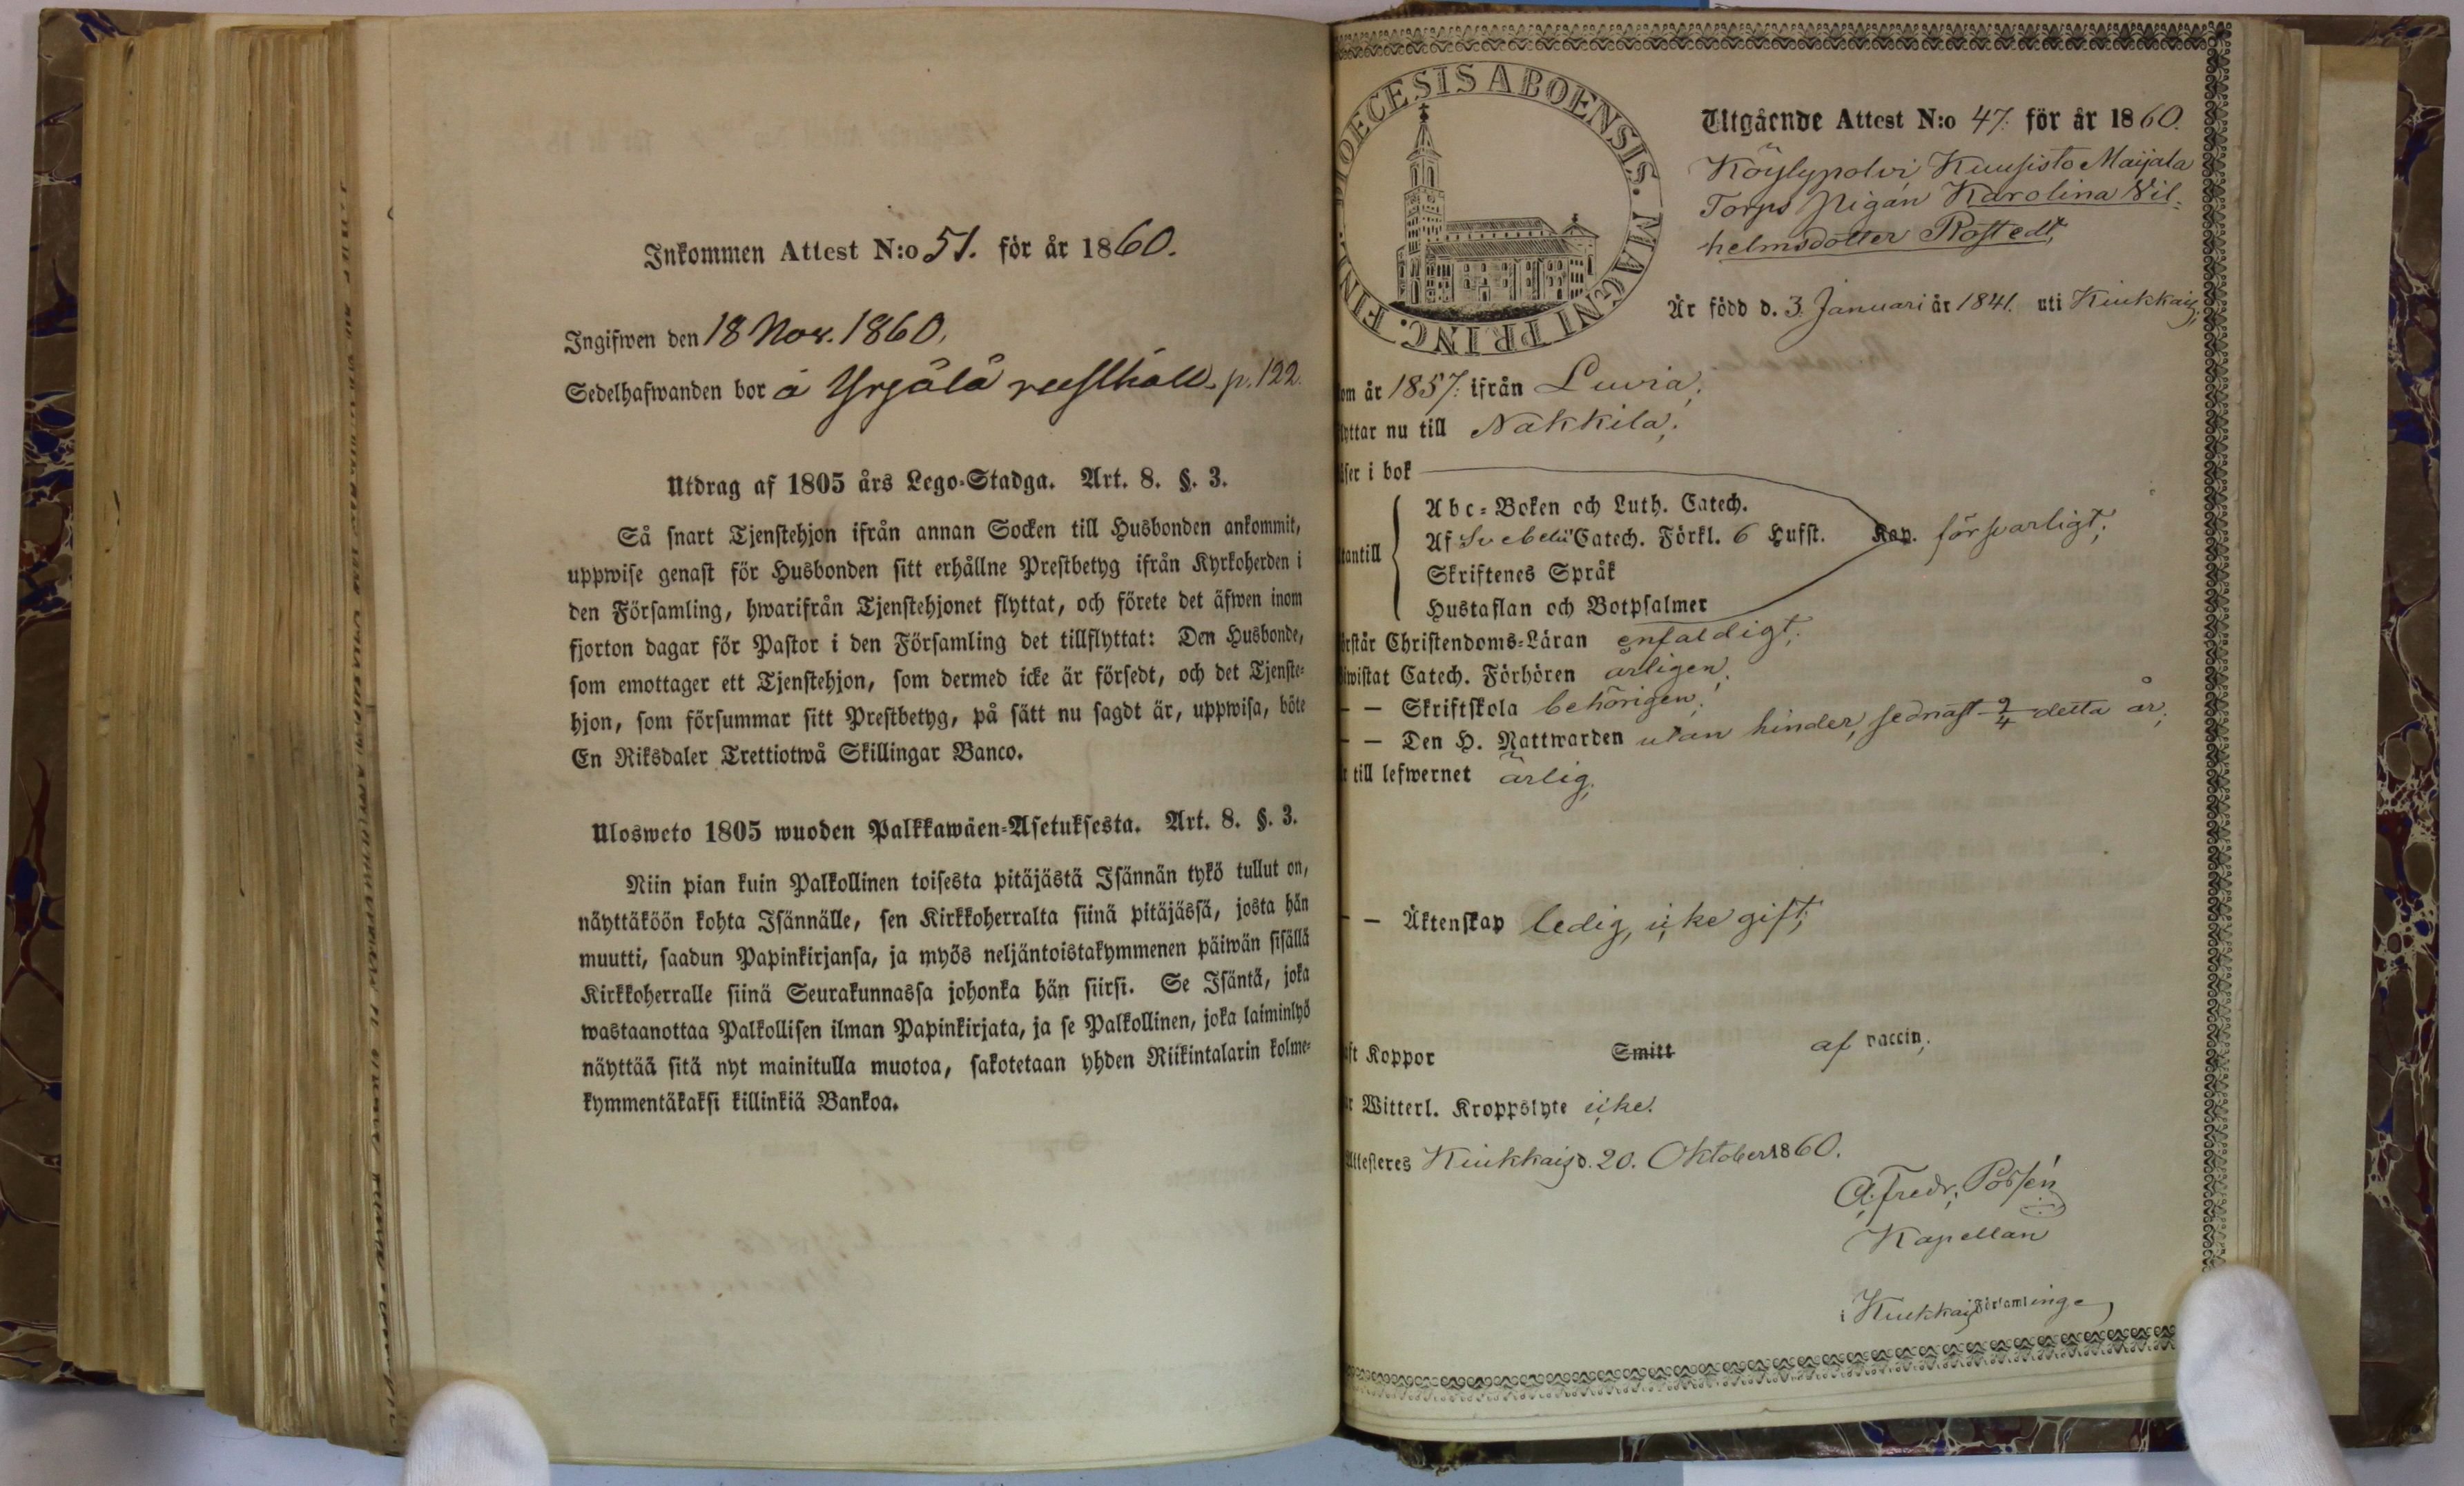 Inkommen Attest N:o 51. för år 1860.
Ingifwen den 18 Nov. 1860.
Sedelhafwanden bor å Yrjälä rusthåll. p. 122.
Utdrag af 1805 års Lego-Stadga. Art. 8. §. 3.
Så snart Tjenstehjon ifrån annan Socken till Husbonden ankommit,
uppwise genast för Husbonden sitt erhållne Prestbetyg ifrån Kyrkoherden i
den Församling, hwarifrån Tjenstehjonet flyttat, och förete det äfwen inom
fjorton dagar för Pastor i den Församling det tillflyttat: Den Husbonde,
som emottager ett Tjenstehjon, som dermed icke är försedt, och det Tjenste-
hjon, som försummar sitt Prestbetyg, på sätt nu sagdt är, uppwisa, böte
En Riksdaler Trettiotwå Skillingar Banco.
Ulosweto 1805 wuoden Palkkawäen-Asetuksesta. Art. 8. §. 3.
Niin pian kuin Palkollinen toisesta pitäjästä Isännän tykö tullut on,
näyttäköön kohta Isännälle, sen Kirkkoherralta siinä pitäjässä, josta hän
muutti, saadun Papinkirjansa, ja myös neljäntoistakymmenen päiwän sisällä
Kirkkoherralle siinä Seurakunnassa johonka hän siirsi. Se Isäntä, joka
wastaanottaa Palkollisen ilman Papinkirjata, ja se Palkollinen, joka laiminlyö
näyttää sitä nyt mainitulla muotoa, sakotetaan yhden Riikintalarin kolme-
kymmentäkaksi killinkiä Bankoa.
DIOECESIS ABOENSIS. MAGNI PRINC. FINL.
Utgående Attest N:o 47. för år 1860.
Köylypolvi, Kuusisto Maijala
Torps Pigan Karolina Vil-
helmsdotter Rostedt,
Är född d. 3. Januari år 1841. uti Kiukkais,
om år 1857. ifrån Luvia,
lyttar nu till Nakkila,
äser i bok
Abc-Boken och Luth. Catech.
tantill Af Svebelii Catech. Förkl. 6 Hufst. Kap. försvarligt,
Skriftenes Språk
Hustaflan och Botpsalmer
örstår Christendoms-Läran enfaldigt,
iwistat Catech. Förhören årligen,
— — Skriftskola behörigen,
— — Den H. Nattwarden utan hinder, sednast 2/4 detta år,
r till lefwernet ärlig,
— — Äktenskap ledig, icke gift,
aft Koppor Smitt af vaccin,
r Witterl. Kroppslyte icke.
Attesteres Kiukkais d. 20. Oktober 1860.
A. Fredr. Possén
Kapellan
i Kiukkais Församlinge